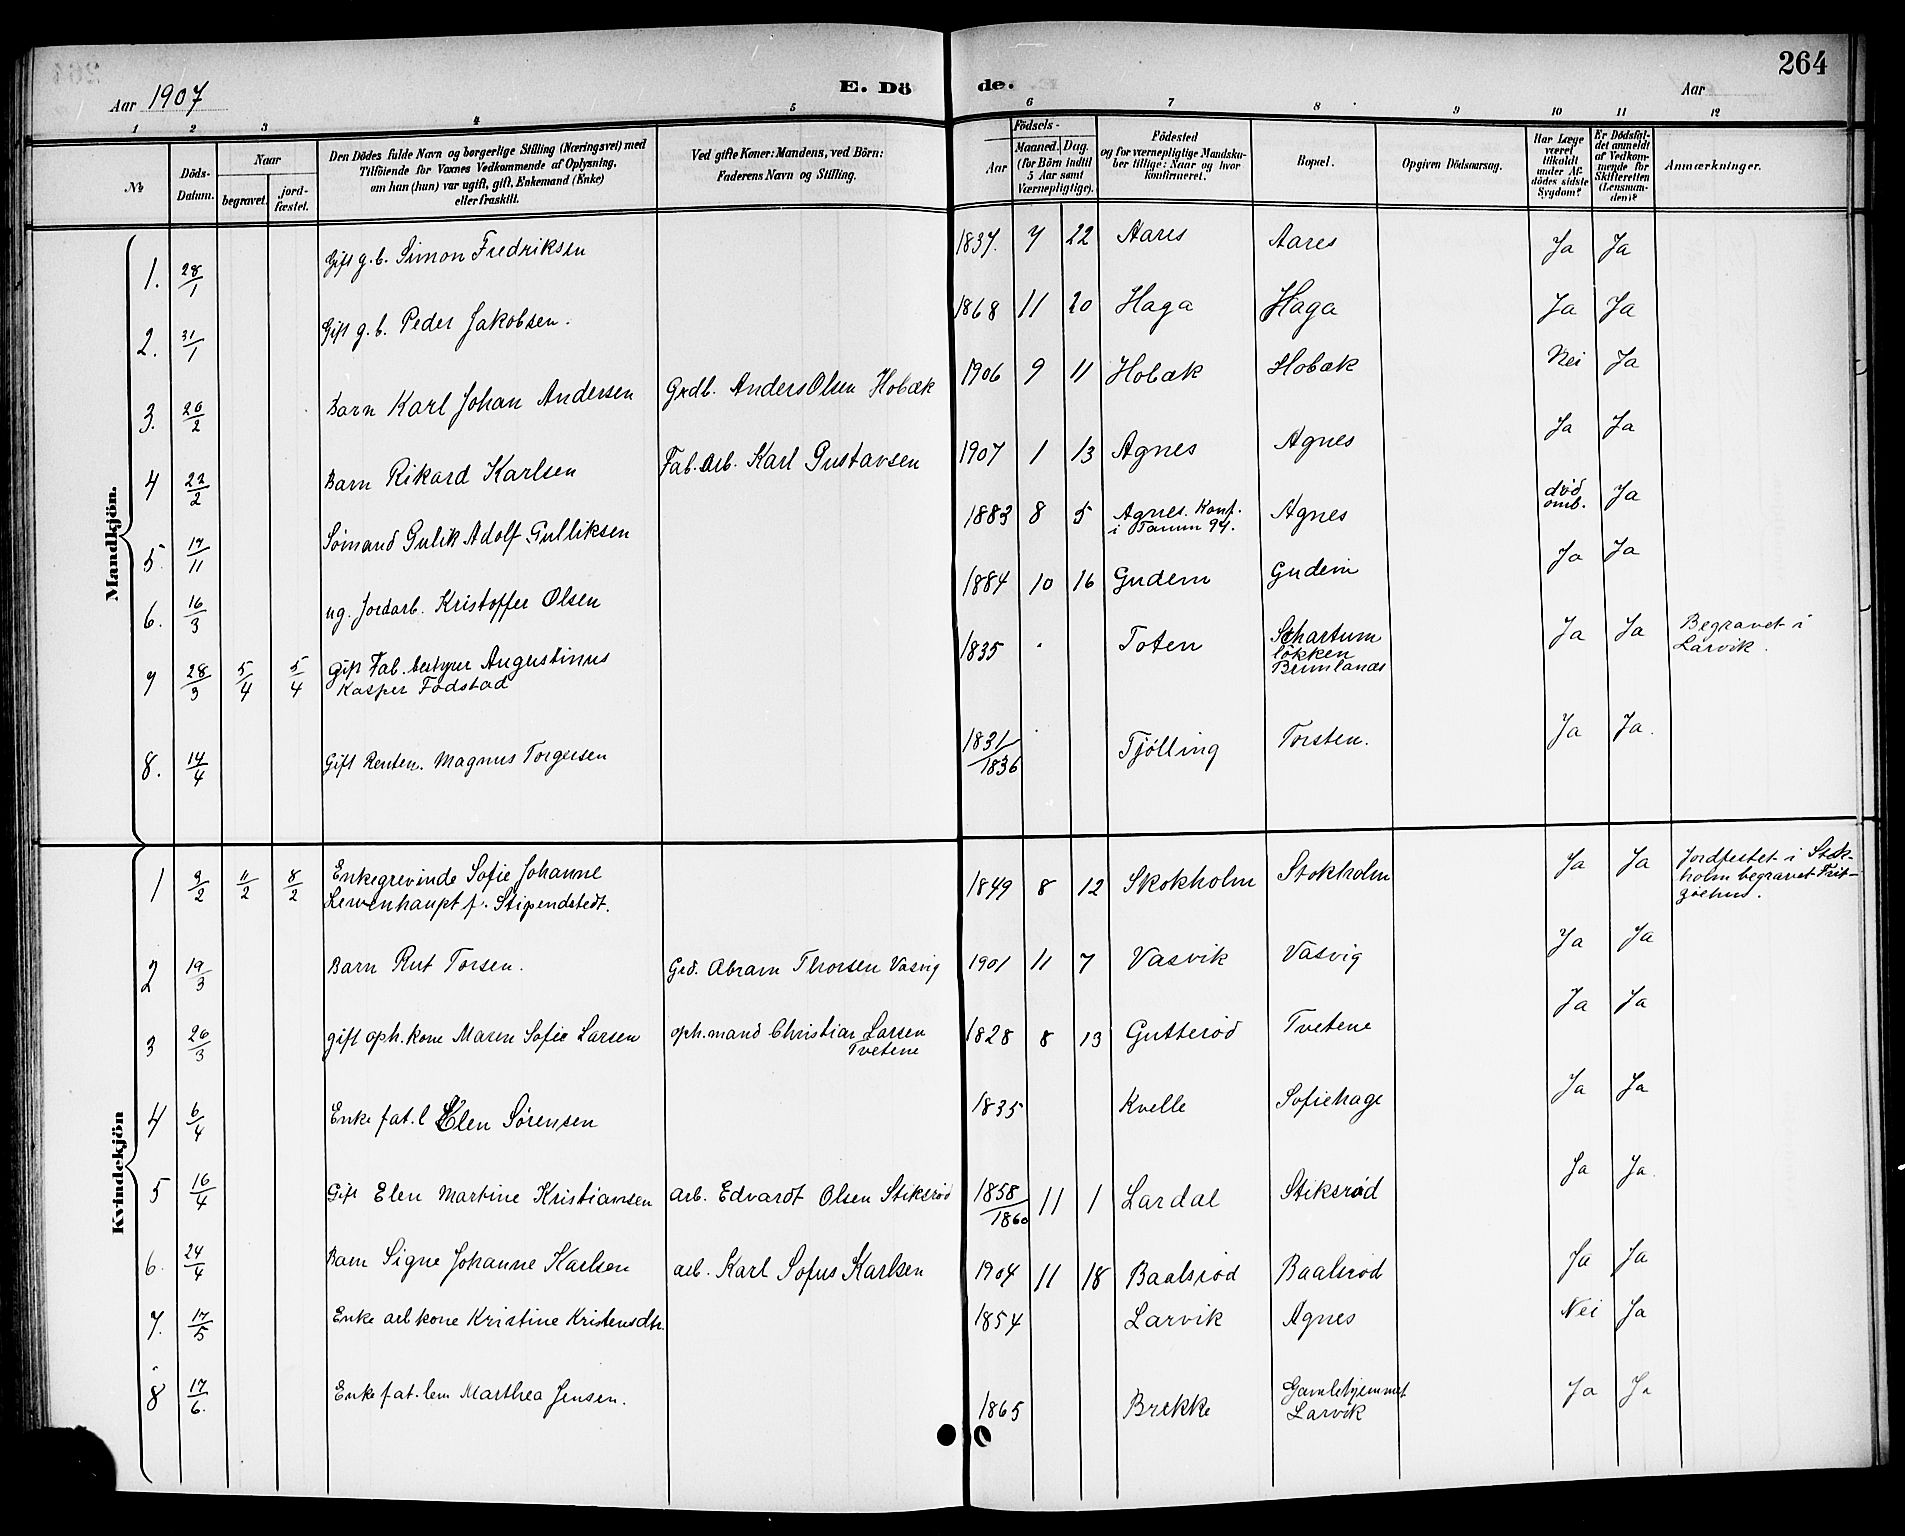 264
Aar 1907
E. Dö
de.
Aar
1 2 3 4 5 6 7 8 9 10 11 12
№
Döds-Datum.
Naar
begravet.
jord-fæstet.
Den Dödes fulde Navn og borgerlige Stilling (Næringsvei) med
Tilföiende for Voxnes Vedkommende af Oplysning,
om han (hun) var ugift, gift, Enkemand (Enke)
eller fraskilt.
Ved gifte Koner: Mandens, ved Börn:
Faderens Navn og Stilling.
Födsels-
Aar
Maaned. Dag.
(for Börn indtil
5 Aar samt
Værnepligtige).
Födested
og for værnepligtige Mandsku-
ber tillige: Naar og hvor
konfirmeret.
Bopæl.
Opgiven Dödsaarsag.
Har Læge
været
tilkaldt
under Af-
dödes sidste
Sygdom?
Er Dödsfal-
det anmeldt
af Vedkom-
mende for
Skifteretten
(Lensman-
den)?
Anmærkninger.
Mandkjön.
1. 28/1 Gift g.b. Simon Fredriksen 1837. 7 22 Aares Aares Ja Ja
2. 31/1 Gift g.b. Peder Jakobsen. 1868 11 20 Haga Haga Ja Ja
3. 20/2 Barn Karl Johan Andersen Grdb. Anders Olsen Hobæk 1906 9 11 Hobæk Hobæk Nei Ja
4 22/2 Barn Rikard Karlsen Fab. arb. Karl Gustavsen 1907 1 13 Agnes Agnes Ja Ja
5. 17/11 Sømand Gulik Adolf Gulliksen 1883 8 5 Agnes. Konf.
i Tanum 94. Agnes død
omb. Ja
6. 16/3 ug. Jordarb. Kristoffer Olsen 1884 10 16 Gudem Gudem Ja Ja
7 28/3 5/4 5/4 Gift Fab. bestyrer Augustinus
Kasper Fodstad 1835 Toten Schartum
løkken
Brunlanæs Ja Ja Begravet i
Larvik.
8. 14/4 Gift Renten. Magnus Torgersen 1831/1836 Tjølling Torsten. Ja Ja.
Kvindekjön
1 9/2 11/2 8/2 Enkegrevinde Sofie Johanne
Lewenhaupt f. Stipendstedt. 1849 8 12 Skokholm Stokholm Ja Ja Jordfestet i Stok-
holm begravet Frit-
zøehus.
2 19/3 Barn Rut Torsen. Grd. Abram Thorsen Vasvig 1901 11 7 Vasvik Vasvig Ja Ja
3 26/3 gift oph. kone Maren Sofie Larsen oph. mand Christian Larsen
Tvetene 1828 8 13 Gutterød Tvetene Ja Ja
4 6/4 Enke fat. l Elen Sørensen 1835 Kvelle Sofiehage Ja Ja
5 16/4 Gift Elen Martine Kristiansen arb. Edvardt Olsen Stiksrød 1858/1860 11 1 Lardal Stiksrød Ja Ja.
6. 24/4 Barn Signe Johanne Karlsen arb. Karl Sofus Karlsen 1904 11 18 Baalsrød Baalsrød Ja Ja
7. 17/5 Enke arb kone Kristine Kristensdtr. 1854 Larvik Agnes Nei Ja
8 17/6. Enke fat. lem Marthea Jensen. 1865 Brekke Gamlehjemmet
Larvik Ja Ja